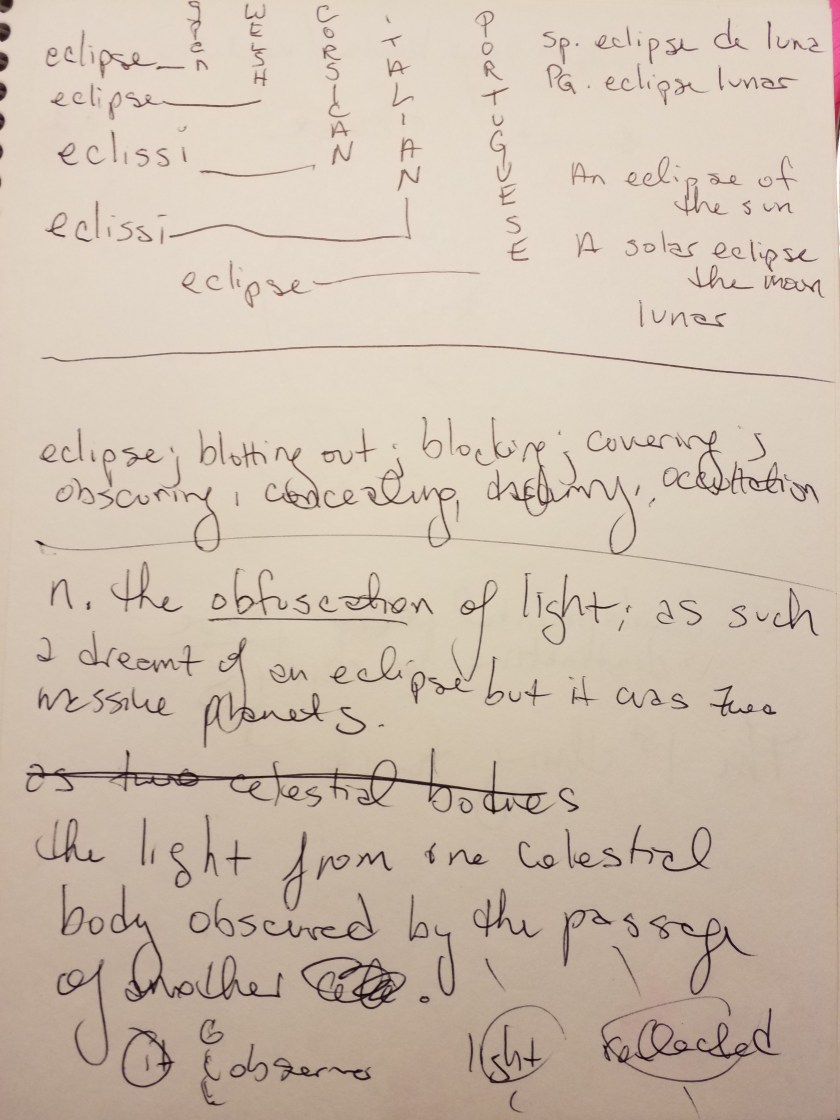 eclipse
WELSH
CORSICAN
ITALIAN
PORTUGUESE
eclipse
eclissi
eclissi
eclipse
Sp. eclipse de luna
PG. eclipse lunar
An eclipse of
the sun
A solar eclipse
the moon
lunar
eclipse; blotting out; blocking; covering;
obscuring, concealing, occultation
n. the obfuscation of light; as such
dreamt of an eclipse but it was two
massive planets.
as two celestial bodies
the light from one celestial
body obscured by the passage
of another
it
light reflected